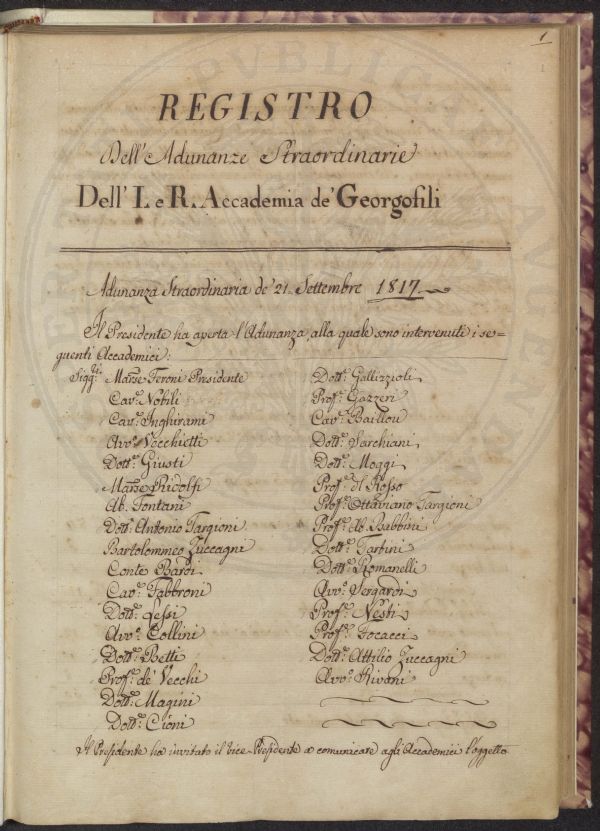 1
REGISTRO
Dell'Adunanze Straordinarie
Dell' I. e R. Accademia de' Georgofili
Adunanza Straordinaria de' 21. Settembre 1817.
Il Presidente ha aperta l'Adunanza, alla quale sono intervenuti i se=
guenti Accademici:
Sigg.ri Marse Feroni Presidente
Cav.e Nobili
Cav.e Inghirami
Avv.o Vecchietti
Dott.e Giusti
Marse Ridolfi
Ab. Fontani
Dott.e Antonio Targioni
Bartolommeo Zuccagni
Conte Bardi
Cav.e Fabbroni
Dott.e Lessi
Avv.o Collini
Dott.e Betti
Prof.e de' Vecchi
Dott.e Magini
Dott.e Cioni
Dott.e Gallizzioli
Prof.e Gazzeri
Cav.e Baillou
Dott.e Sarchiani
Dott.e Moggi
Prof.e Del Rosso
Prof.e Ottaviano Targioni
Prof.e Ab. Babbini
Dott.e Tartini
Dott.e Romanelli
Avv.o Sergardi
Prof.e Nesti
Prof.e Focacci
Dott.e Attilio Zuccagni
Avv.o Rivani
Il Presidente ha invitato il Vice-Presidente a comunicare agli Accademici l'oggetto